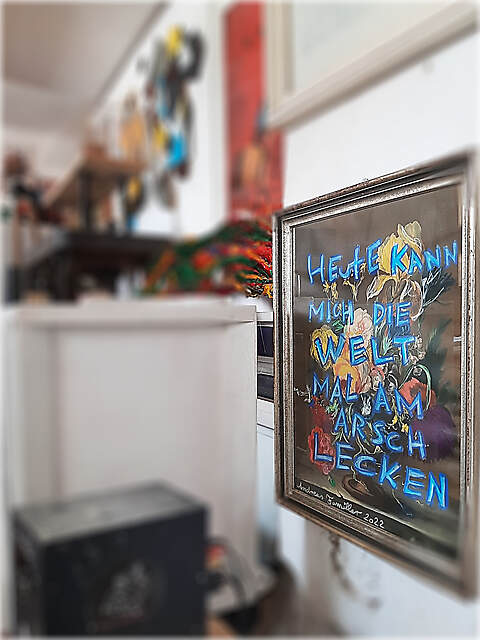 HEUTE KANN
MICH DIE
WELT
MAL AM
ARSCH
LECKEN
Andreas Fumiller 2022